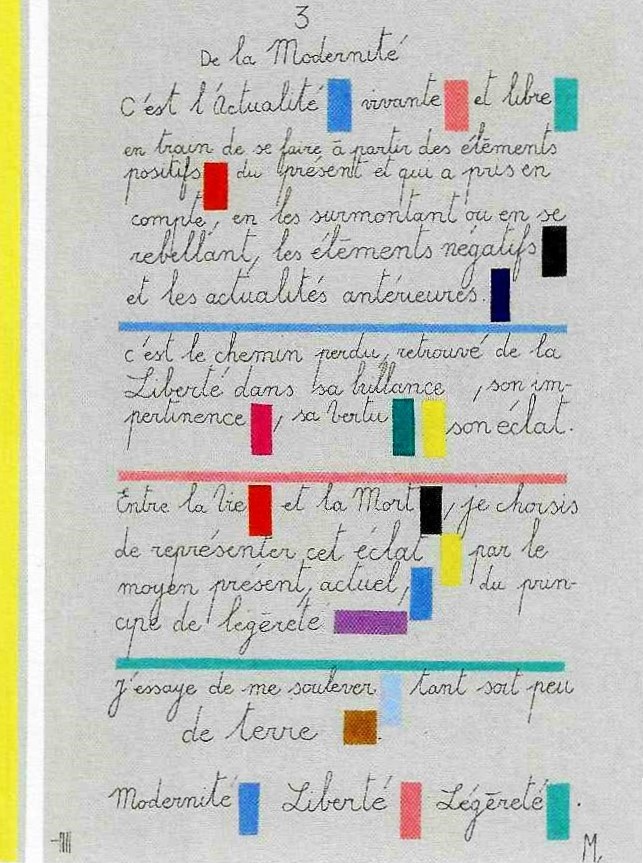 3
De la Modernité
C'est l'Actualité vivante et libre
en train de se faire à partir des éléments
positifs du présent et qui a pris en
compte, en les surmontant ou en se
rebellant, les éléments négatifs
et les actualités antérieures.
C'est le chemin perdu, retrouvé de la
Liberté dans sa brillance, son im-
pertinence, sa vertu son éclat.
Entre la Vie et la Mort, je choisis
de représenter cet éclat par le
moyen présent, actuel, du prin-
cipe de légèreté
J'essaye de me soulever tant soit peu
de terre.
Modernité Liberté Légèreté.
M.